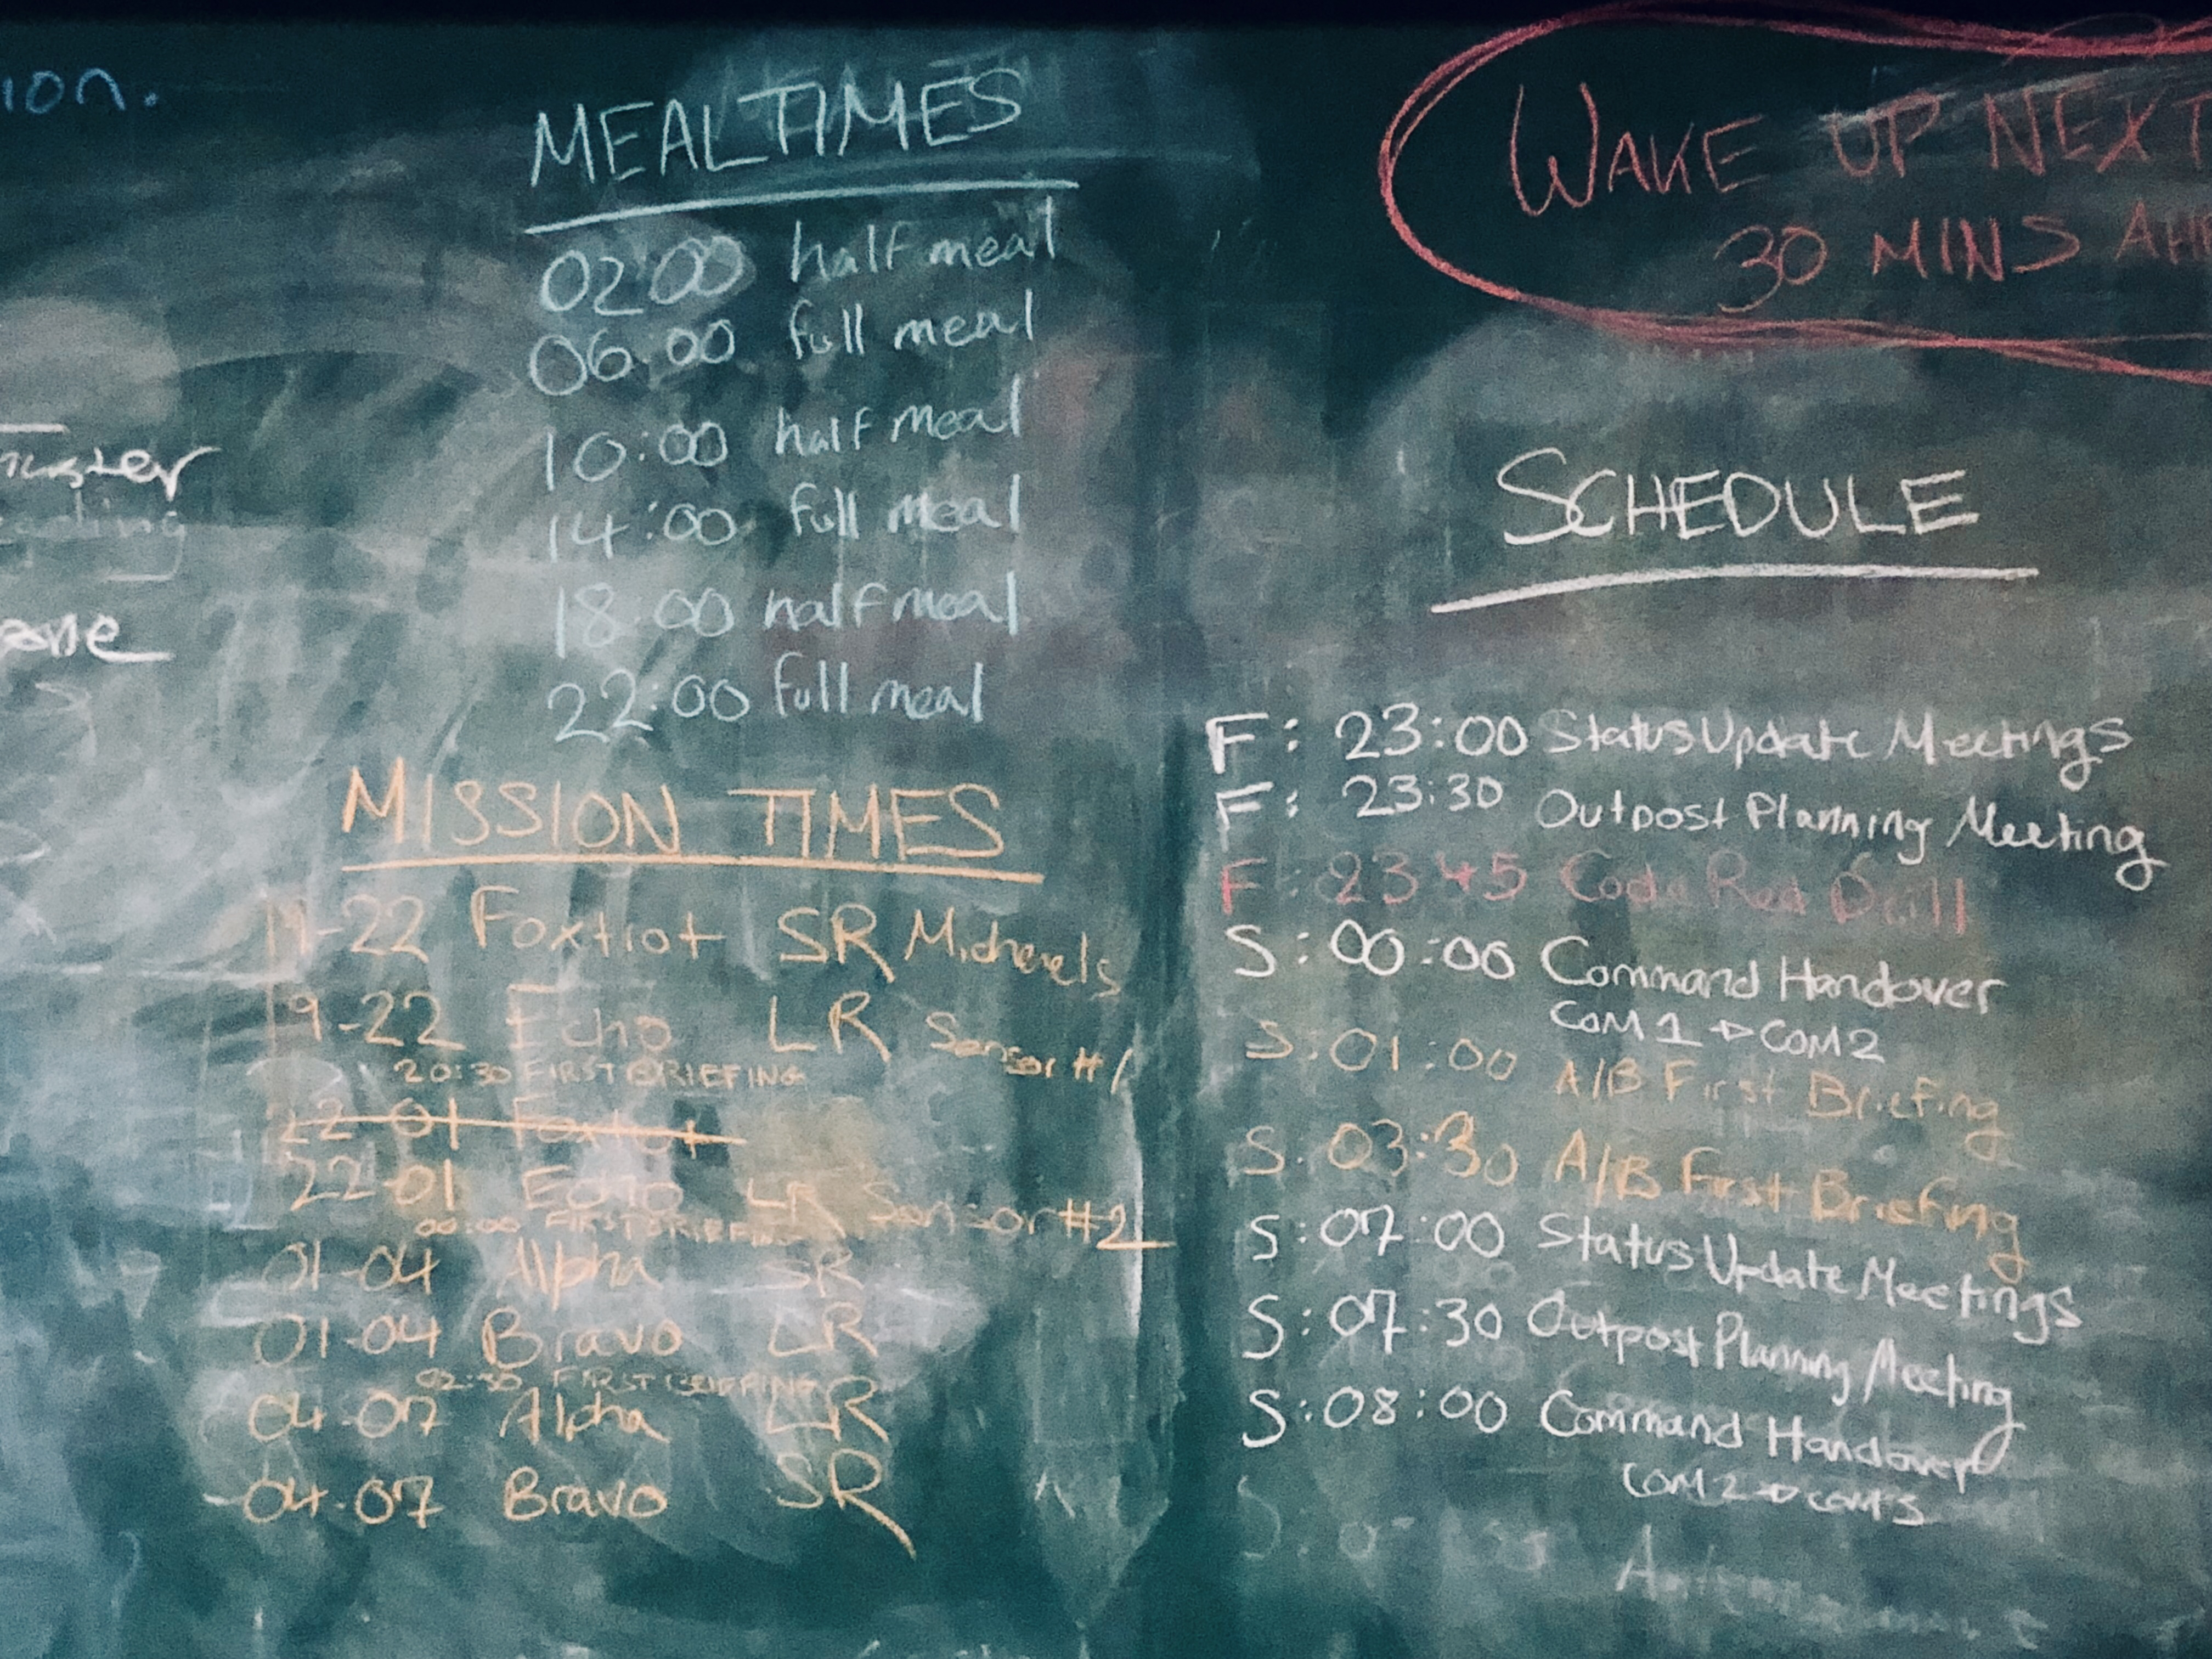 MEALTIMES
02:00 half meal
06:00 full meal
10:00 half meal
14:00 full meal
18:00 half meal
22:00 full meal
MISSION TIMES
19-22 Foxtrot SR Michaels
19-22 Echo LR Sensor #1
20:30 FIRST BRIEFING
22-01 Foxtrot
22-01 Echo LR Sensor #2
00:00 FIRST BRIEFING
01-04 Alpha SR
01-04 Bravo LR
02:30 FIRST BRIEFING
04-07 Alpha LR
04-07 Bravo SR
WAKE UP NEXT
30 MINS
SCHEDULE
F: 23:00 Status Update Meetings
F: 23:30 Outpost Planning Meeting
F: 23 45 Code Red Drill
S: 00:00 Command Handover
COM1 → COM2
S: 01:00 A/B First Briefing
S: 03:30 A/B First Briefing
S: 07:00 Status Update Meetings
S: 07:30 Outpost Planning Meeting
S: 08:00 Command Handover
COM2 → COM3